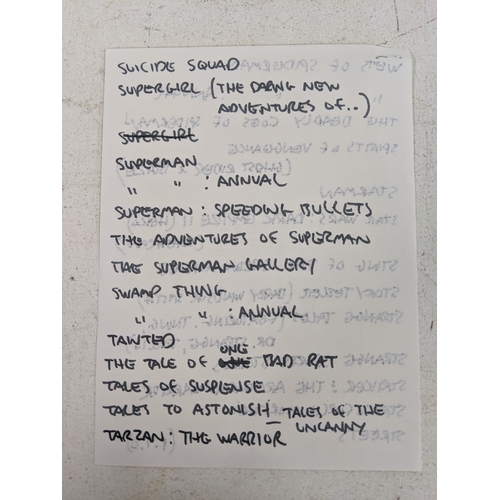 SUICIDE SQUAD
SUPERGIRL (THE DARING NEW
ADVENTURES OF..)
SUPERGIRL
SUPERMAN
" " : ANNUAL
SUPERMAN : SPEEDING BULLETS
THE ADVENTURES OF SUPERMAN
THE SUPERMAN GALLERY
SWAMP THING
" " : ANNUAL
TAINTED
THE TALE OF ONE BAD RAT
TALES OF SUSPENSE
TALES TO ASTONISH – TALES OF THE
UNCANNY
TARZAN : THE WARRIOR